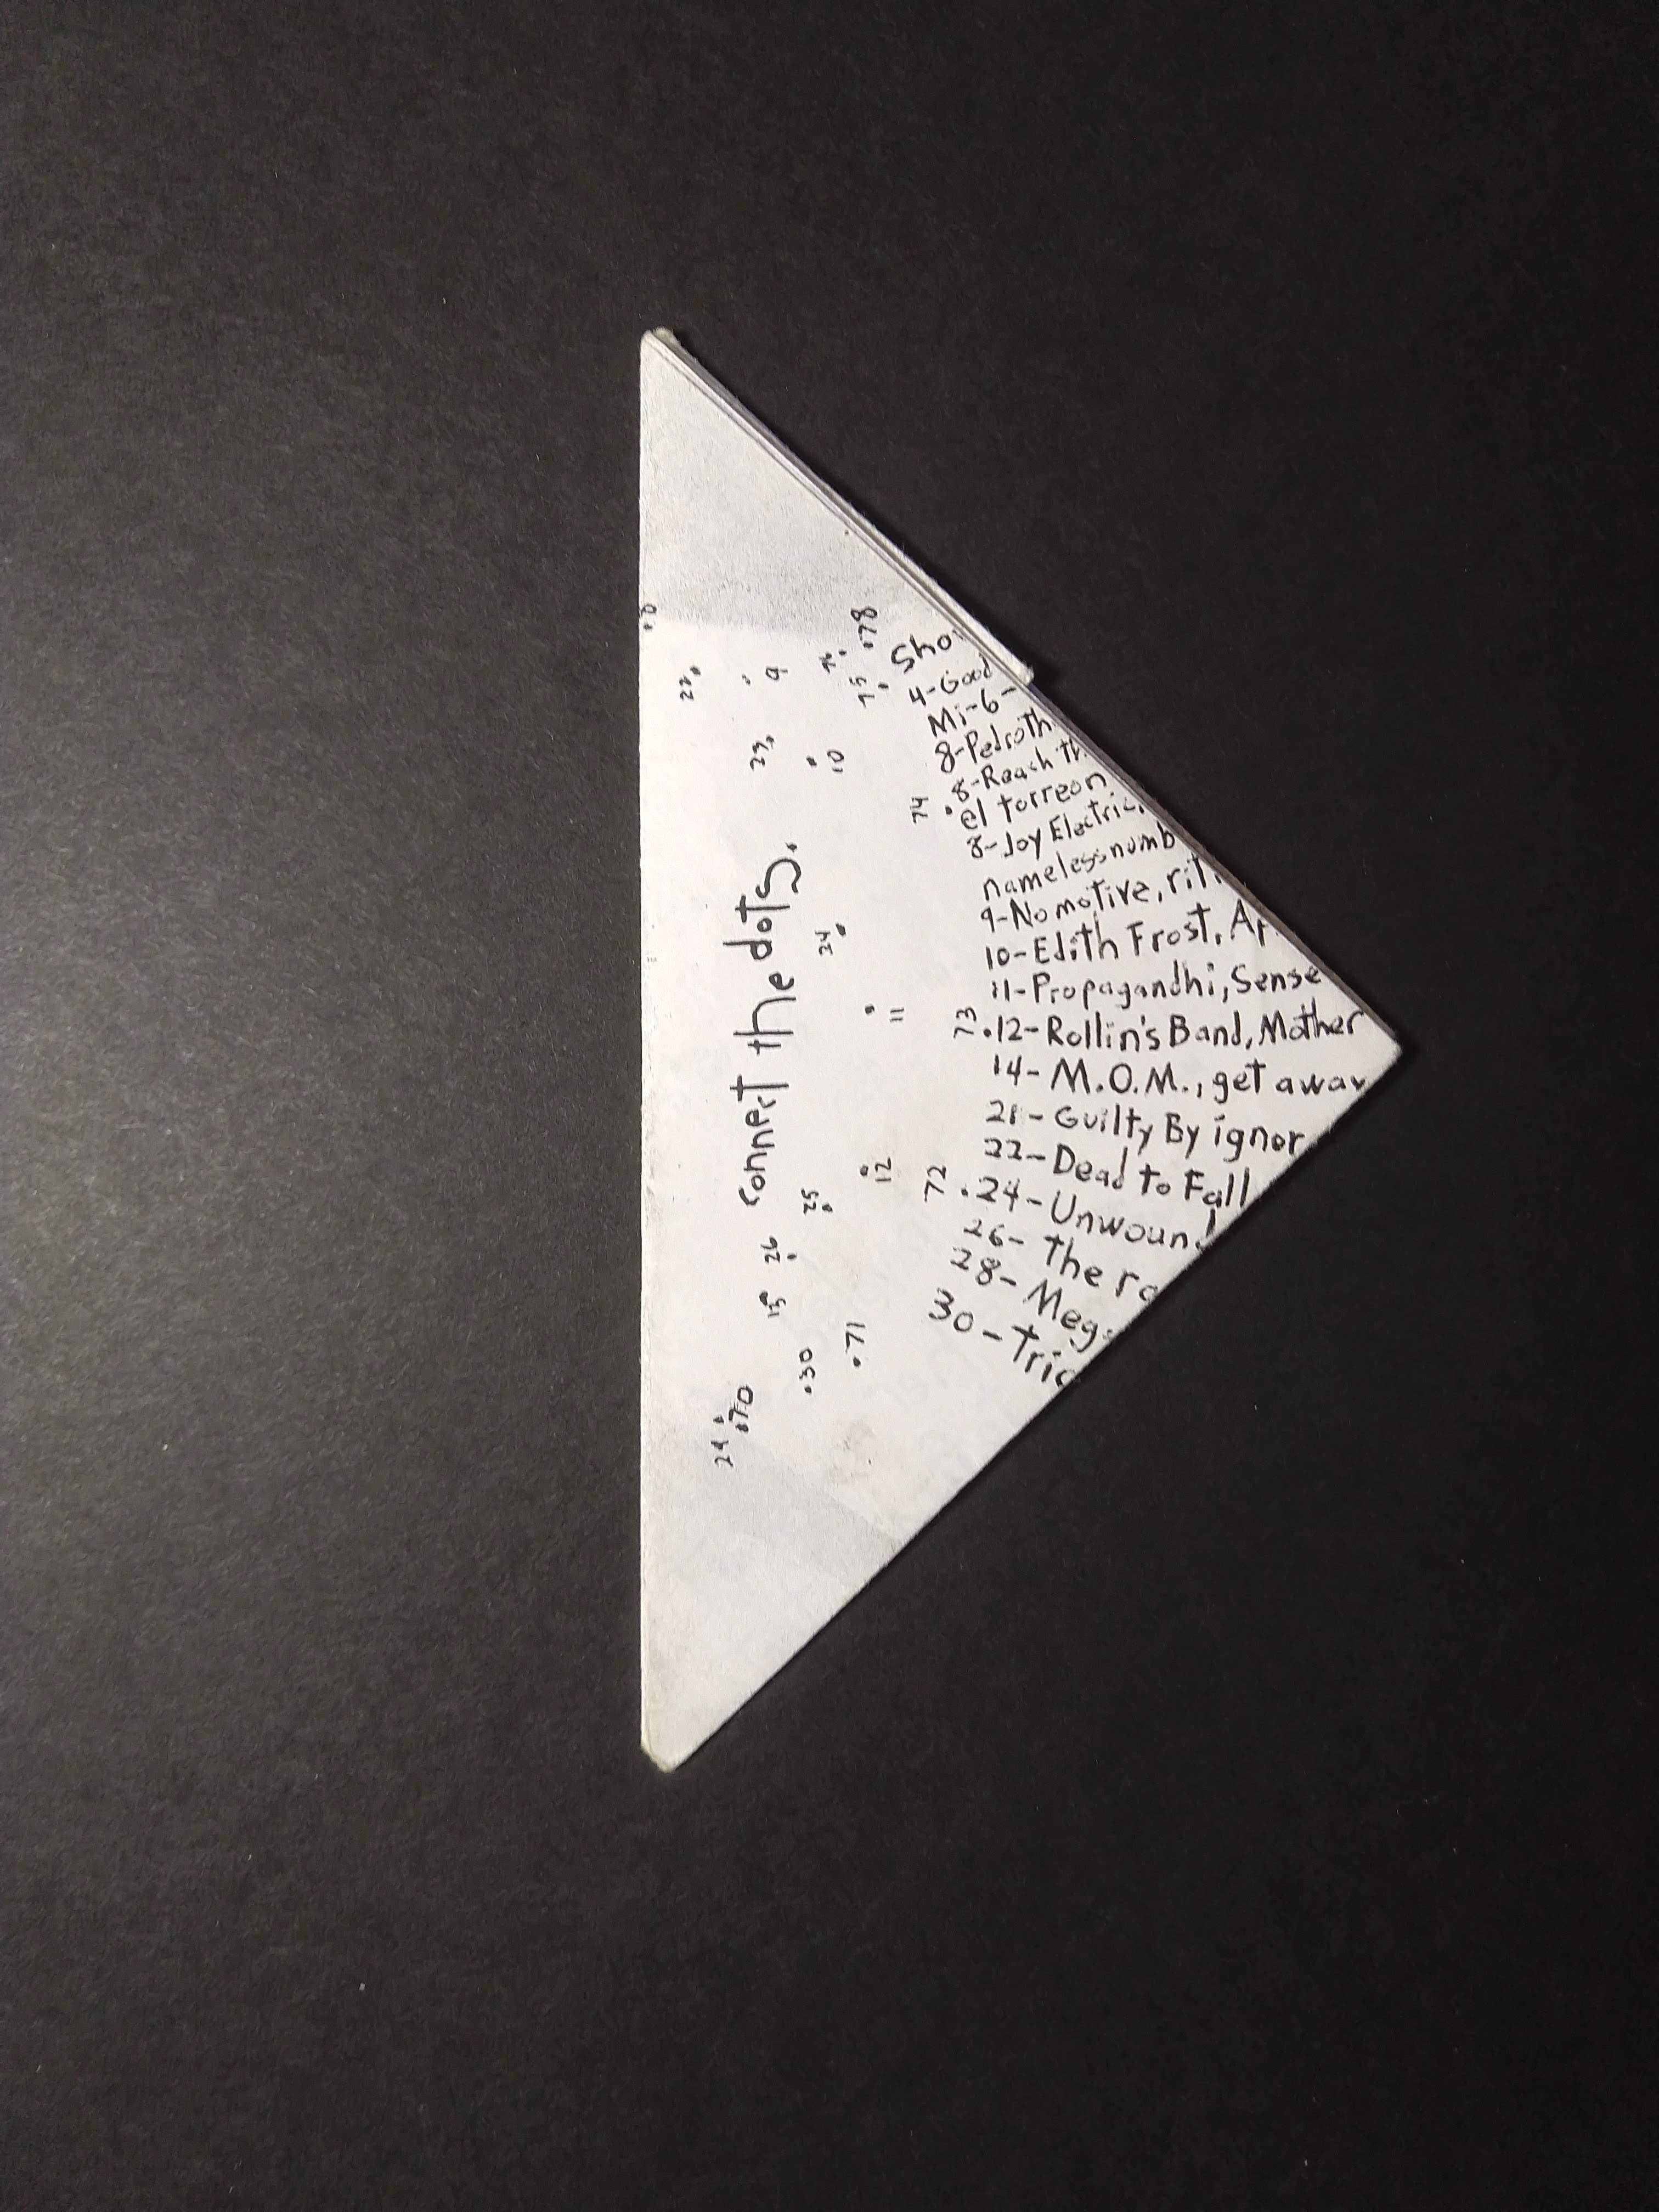 connect the dots.
Sho
4-Good
Mi-6-
8-Pedroth
8-Reach th
el torreon
8-Joy Electric,
namelessnumb
9-No motive, rit
10-Edith Frost, Ar
11-Propagandhi, Sense
12-Rollin's Band, Mother
14-M.O.M., get away
21-Guilty By ignor
22-Dead to Fall
24-Unwound
26-The ro
28-Mega
30-Tric
8
9
10
11
12
13
22
23
24
25
26
29
30
70
71
72
73
74
75
76
78